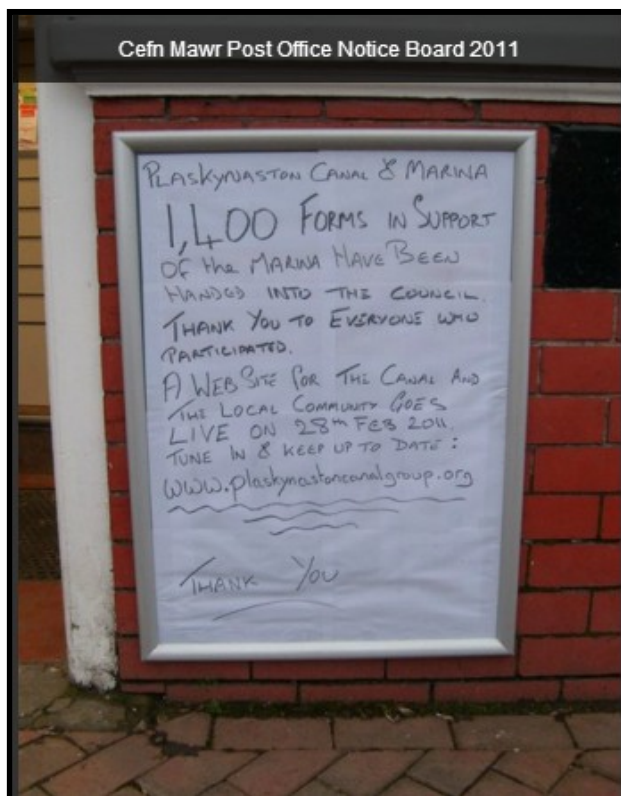 Cefn Mawr Post Office Notice Board 2011
PLASKYNASTON CANAL & MARINA
1,400 FORMS IN SUPPORT
OF the MARINA HAVE BEEN
HANDED INTO THE COUNCIL.
THANK YOU TO EVERYONE WHO
PARTICIPATED.
A WEB SITE FOR THE CANAL AND
THE LOCAL COMMUNITY GOES
LIVE ON 28th FEB 2011.
TUNE IN & KEEP UP TO DATE:
www.plaskynastoncanalgroup.org
THANK YOU